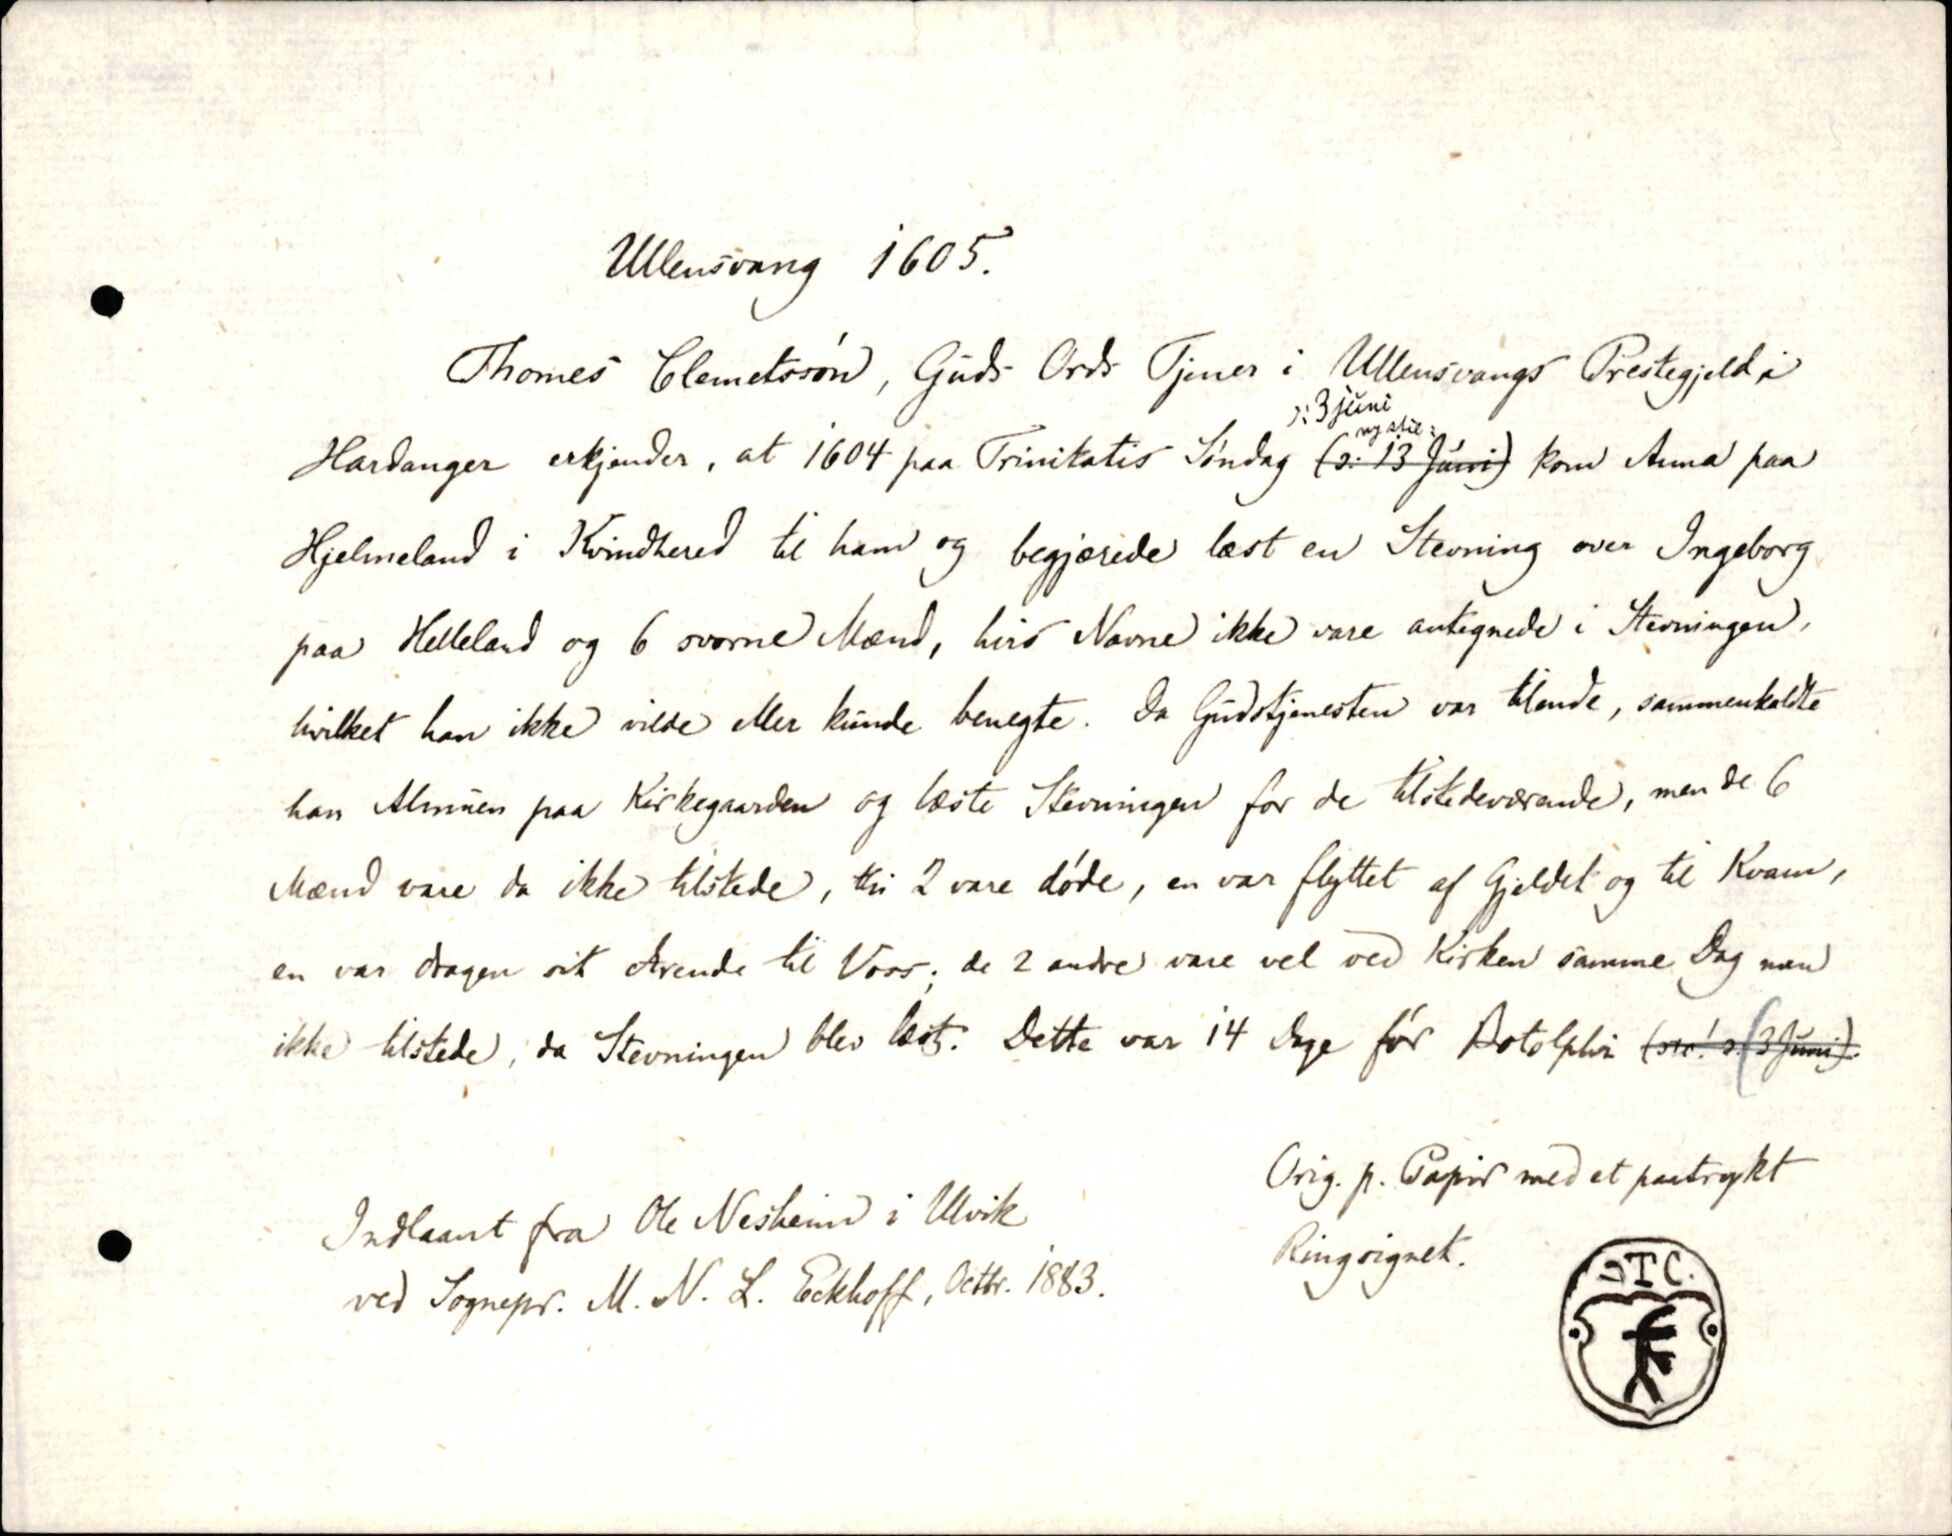 Ullensvang 1605.
Thomes Clemetssøn, Guds Ords Tjener i Ullensvangs Prestegjeld i
ɔ: 3 juni
ny stil:
Hardanger erkjender, at 1604 paa Trinitatis Søndag (ɔ: 13 Juni) kom Anna paa
Hjelmeland i Kvindhered til ham og begjærede læst en Stevning over Ingeborg
paa Helleland og 6 svorne Mænd, hvis Navne ikke vare antegnede i Stevningen,
hvilket han ikke vilde eller kunde benegte. Da Gudstjenesten var tilende, sammenkaldte
han Almuen paa Kirkegaarden og læste Stevningen for de tilstedeværende, men de 6
Mænd vare da ikke tilstede, thi 2 vare døde, en var flyttet af Gjeldet og til Kvam,
en var dragen sit Ærende til Voss; de 2 andre vare vel ved Kirken samme Dag men
ikke tilstede, da Stevningen blev læst. Dette var 14 Dage før Botolphi (sic! ɔ: 3 Juni).
Orig. p. Papir med et paatrykt
Ringsignet.
Indlaant fra Ole Nesheim i Ulvik
ved Sognepr. M. N. L. Eckhoff, Octbr. 1883.
TC.